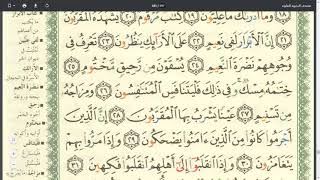 ١٨ وَمَآ أَدۡرَىٰكَ مَا عِلِّيُّونَ ١٩ كِتَٰبٞ مَّرۡقُومٞ ٢٠ يَشۡهَدُهُ ٱلۡمُقَرَّبُونَ
٢١ إِنَّ ٱلۡأَبۡرَارَ لَفِي نَعِيمٍ ٢٢ عَلَى ٱلۡأَرَآئِكِ يَنظُرُونَ ٢٣ تَعۡرِفُ فِي
وُجُوهِهِمۡ نَضۡرَةَ ٱلنَّعِيمِ ٢٤ يُسۡقَوۡنَ مِن رَّحِيقٖ مَّخۡتُومٍ ٢٥
خِتَٰمُهُۥ مِسۡكٞۚ وَفِي ذَٰلِكَ فَلۡيَتَنَافَسِ ٱلۡمُتَنَٰفِسُونَ ٢٦ وَمِزَاجُهُۥ
مِن تَسۡنِيمٍ ٢٧ عَيۡنٗا يَشۡرَبُ بِهَا ٱلۡمُقَرَّبُونَ ٢٨ إِنَّ ٱلَّذِينَ
أَجۡرَمُواْ كَانُواْ مِنَ ٱلَّذِينَ ءَامَنُواْ يَضۡحَكُونَ ٢٩ وَإِذَا مَرُّواْ بِهِمۡ
يَتَغَامَزُونَ ٣٠ وَإِذَا ٱنقَلَبُوٓاْ إِلَىٰٓ أَهۡلِهِمُ ٱنقَلَبُواْ فَكِهِينَ ٣١